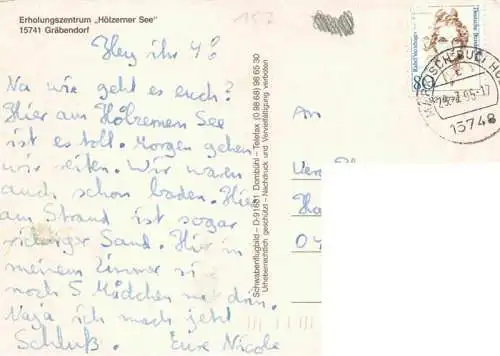 Erholungszentrum „Hölzerner See"
15741 Gräbendorf
157
Hey ihr 4!
Na wie geht es euch?
Hier am Hölzernen See
ist es toll. Morgen gehen
wir reiten. Wir waren
auch schon baden. Hier
am Strand ist sogar
richtiger Sand. Hier in
meinem Zimmer si
noch 5 Mädchen mit drin.
Naja ich mach jetzt
Schluß. Eure Nicole
Schwabenflugbild – D-91601 Dombühl – Telefax (0 98 68) 98 65 30
Urheberrechtlich geschützt – Nachdruck und Vervielfältigung verboten
An
Ha
04
80
Deutsche Bundespost
MÄRKISCH BUCHH
-7.95-17
15748